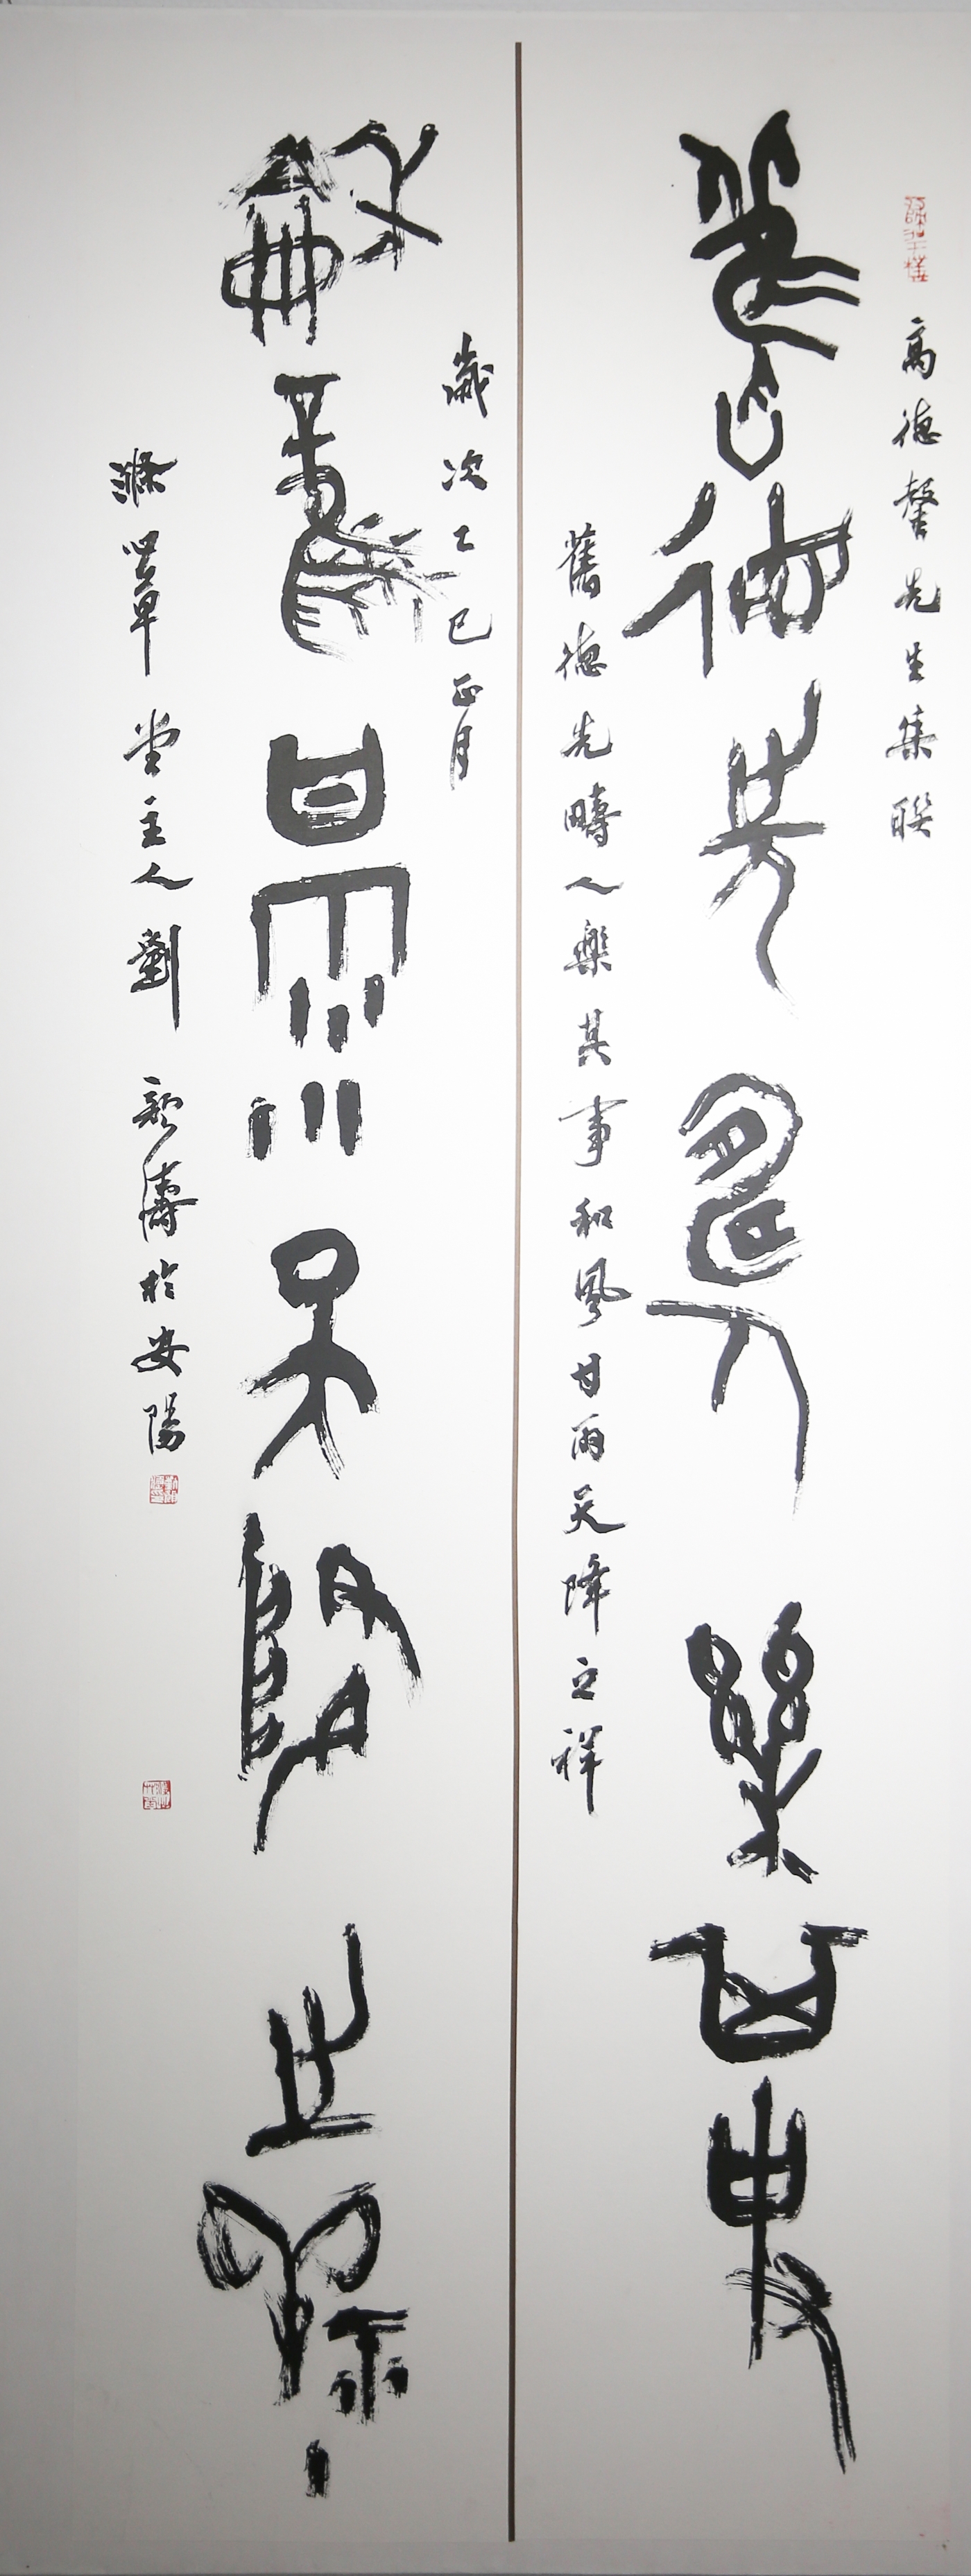 高德馨先生集联
舊德先疇人樂其事
舊德先疇人樂其事和風甘雨天降之祥
和風甘雨天降之祥
歲次乙巳正月
滌器草堂主人劉新濤於安陽